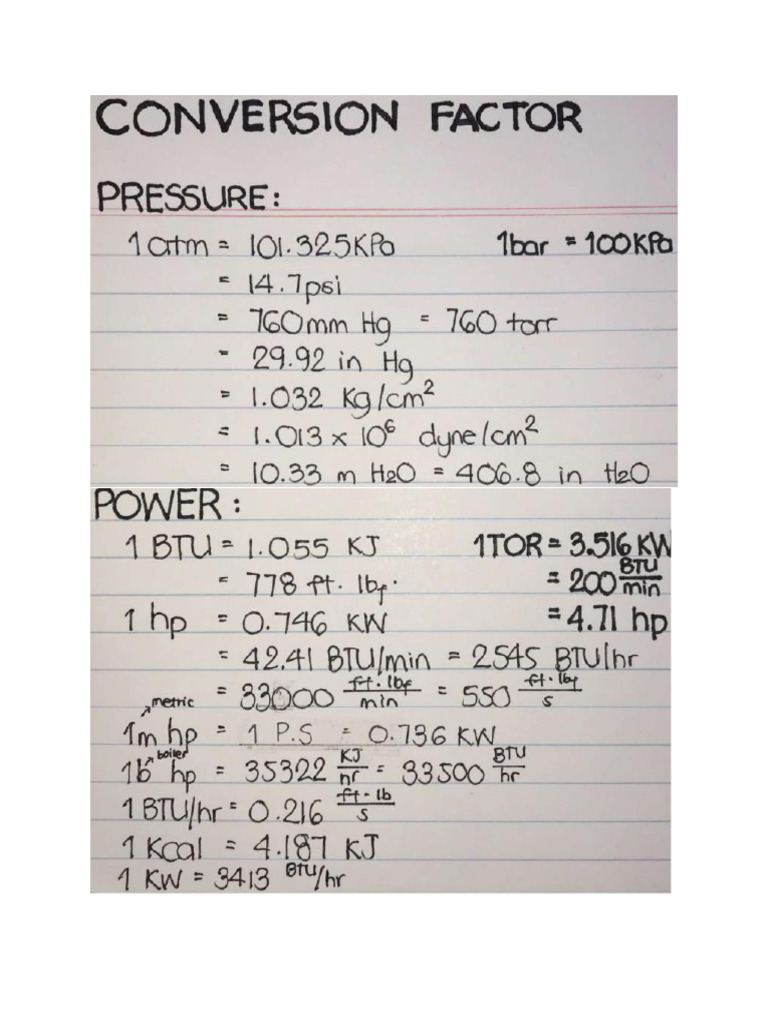 CONVERSION FACTOR
PRESSURE:
1 atm = 101.325KPa 1bar = 100KPa
= 14.7psi
= 760mm Hg = 760 torr
= 29.92 in Hg
= 1.032 Kg/cm²
= 1.013 x 10⁶ dyne/cm²
= 10.33 m H2O = 406.8 in H2O
POWER:
1 BTU = 1.055 KJ 1TOR = 3.516KW
= 778 ft. lbf. = 200 BTU/min
1 hp = 0.746 KW = 4.71 hp
= 42.41 BTU/min = 2545 BTU/hr
= 33000 ft.lbf/min = 550 ft.lbf/s
metric
1m hp = 1 P.S = 0.736 KW
boiler
1b hp = 35322 KJ/hr = 33500 BTU/hr
1 BTU/hr = 0.216 ft-lb/s
1 Kcal = 4.187 KJ
1 KW = 3413 BTU/hr